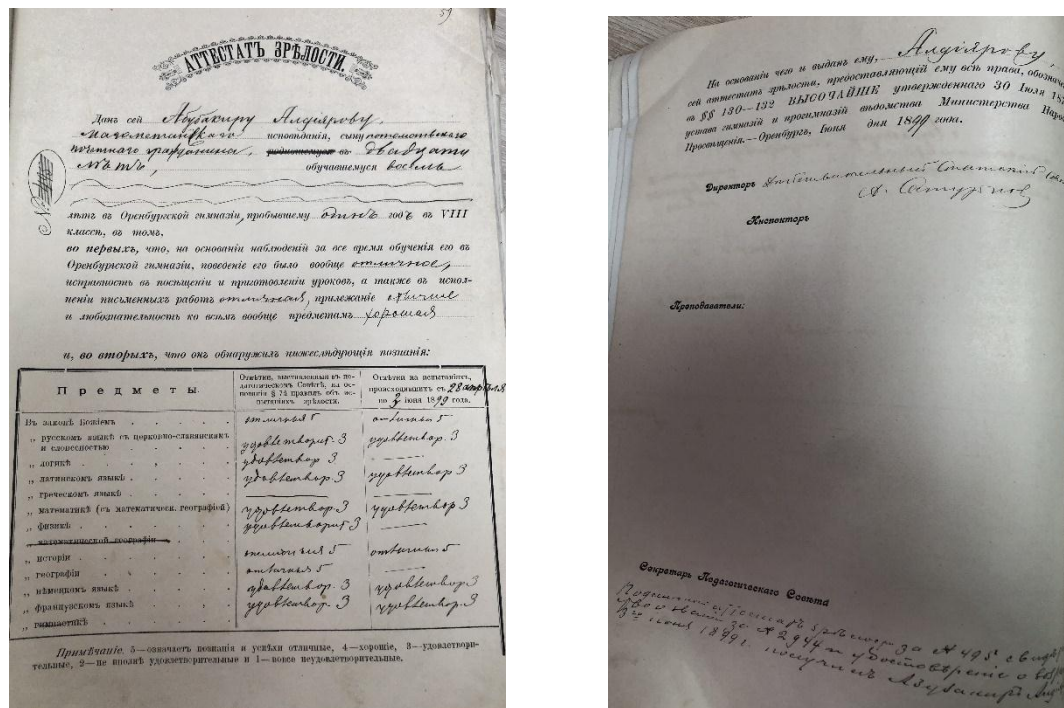 59
АТТЕСТАТЪ ЗРѢЛОСТИ.
Данъ сей Абубакиру Алдіярову,
Магометанскаго исповѣданія, сыну потомственнаго
почетнаго гражданина, въ двадцати
лѣтъ, обучавшемуся восемь
лѣтъ въ Оренбургской гимназіи, пробывшему одинъ годъ въ VIII
классѣ, въ томъ,
во первыхъ, что, на основаніи наблюденій за все время обученія его въ
Оренбургской гимназіи, поведеніе его было вообще отличное,
исправность въ посѣщеніи и приготовленіи уроковъ, а также въ испол-
неніи письменныхъ работъ отличная, прилежаніе
и любознательность ко всѣмъ вообще предметамъ хорошая
и, во вторыхъ, что онъ обнаружилъ нижеслѣдующія познанія:
Предметы.
Отмѣтки, выставленныя въ пе-
дагогическомъ Совѣтѣ, на ос-
нованіи § 74 правилъ объ ис-
пытаніяхъ зрѣлости.
Отмѣтки на испытаніяхъ,
происходившихъ съ 28 апрѣля
по 2 іюня 1899 года.
Въ законѣ Божіемъ отличныя 5 отличныя 5
„ русскомъ языкѣ съ церковно-славянскимъ
и словесностью удовлетворит. 3 удовлетвор. 3
„ логикѣ удовлетвор. 3 —
„ латинскомъ языкѣ удовлетвор. 3 удовлетвор. 3
„ греческомъ языкѣ — —
„ математикѣ (съ математическ. географіей) удовлетвор. 3 удовлетвор. 3
„ физикѣ удовлетворит. 3 —
„ математической географіи
„ исторіи отличныя 5 отличныя 5
„ географіи отличныя 5 —
„ нѣмецкомъ языкѣ удовлетвор. 3 удовлетвор. 3
„ французскомъ языкѣ удовлетвор. 3 удовлетвор. 3
„ гимнастикѣ
Примѣчаніе. 5—означаетъ познанія и успѣхи отличные, 4—хорошіе, 3—удовлетвори-
тельные, 2—не вполнѣ удовлетворительные и 1—вовсе неудовлетворительные.
На основаніи чего и выданъ ему, Алдіярову,
сей аттестатъ зрѣлости, предоставляющій ему всѣ права, обозначе
въ §§ 130—132 ВЫСОЧАЙШЕ утвержденнаго 30 Іюля 18
устава гимназій и прогимназій вѣдомства Министерства Народ
Просвѣщенія.—Оренбургъ, Іюня дня 1899 года.
Директоръ Дѣйствительный Статскій
Инспекторъ
Преподаватели:
Секретарь Педагогическаго Совѣта
Подлинный аттестатъ зрѣлости за № 495
за № 2944 и удостовѣреніе о
іюня 1899 г. получилъ Абубакиръ